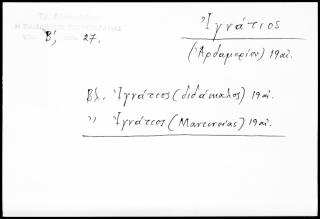 Ἰγνάτιος
Β΄, 27.
(Ἀρδαμερίου) 19 αἰ.
Βλ. Ἰγνάτιος (διδάσκαλος) 19 αἰ.
” Ἰγνάτιος (Μαντινείας) 19 αἰ.